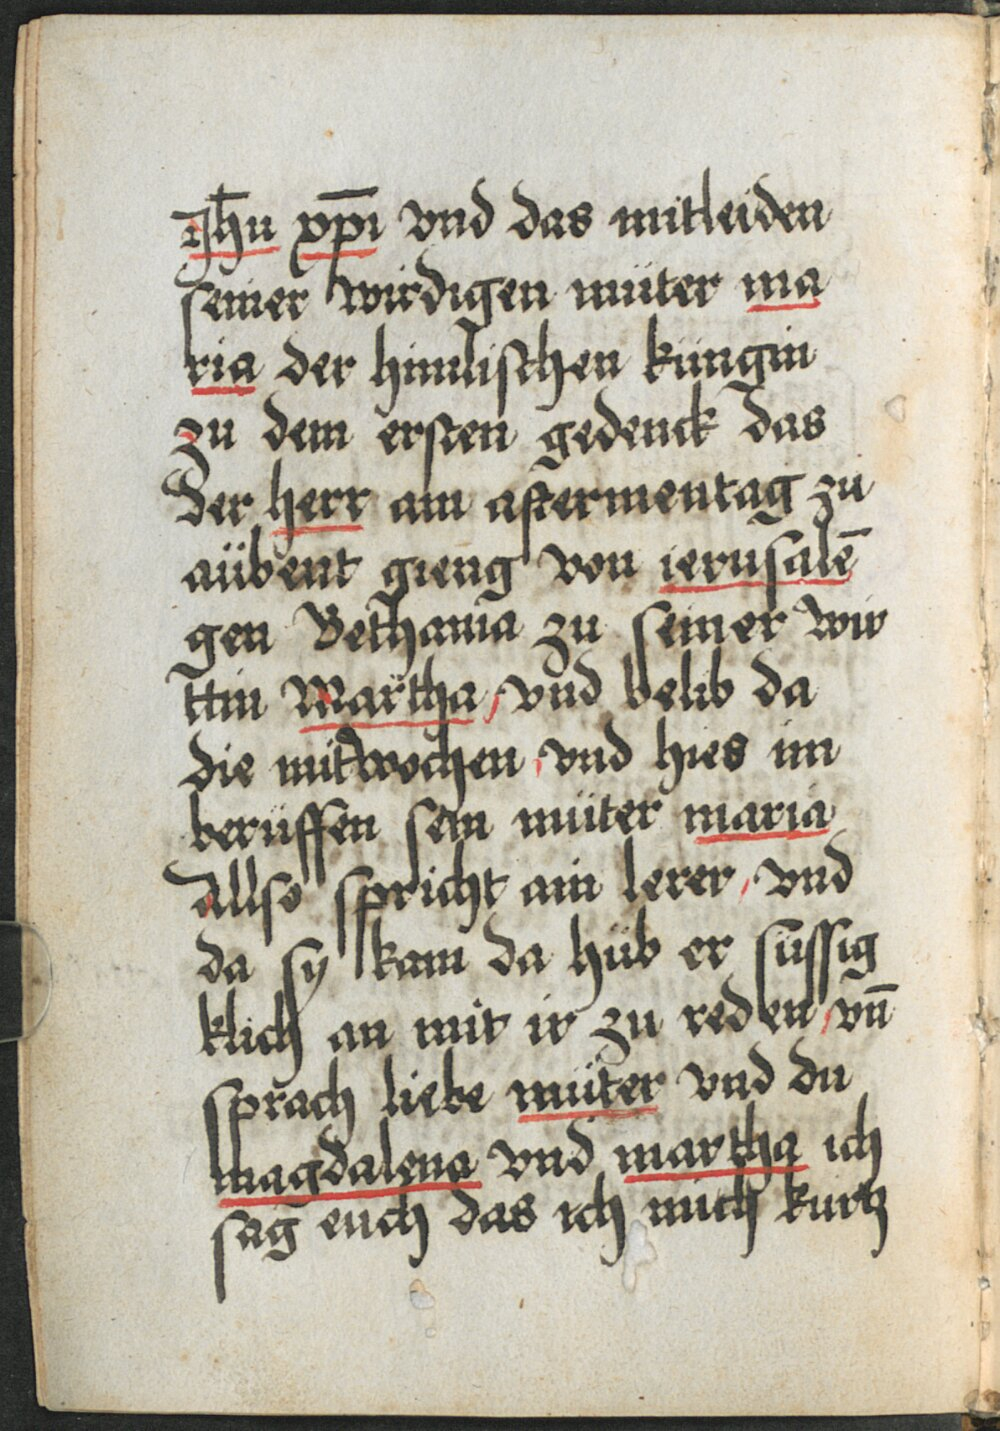 Jhu̅ xp̅i vnd das mitleiden
seiner wirdigen müter ma
ria der himlischen küngin
zu dem ersten gedenck das
der herr am aftermentag zu
aübent gieng von ierusale̅
gen Bethania zu seiner wir
ttin Martha / vnd belib da
die mitwochen / vnd hies im
berüffen sein müter maria
Allso spricht ain lerer / vnd
da sy kam da hüb er süssig
klich an mit ir zu reden / vn̅
sprach liebe müter vnd du
magdalena vnd martha ich
sag euch das ich mich kurtz